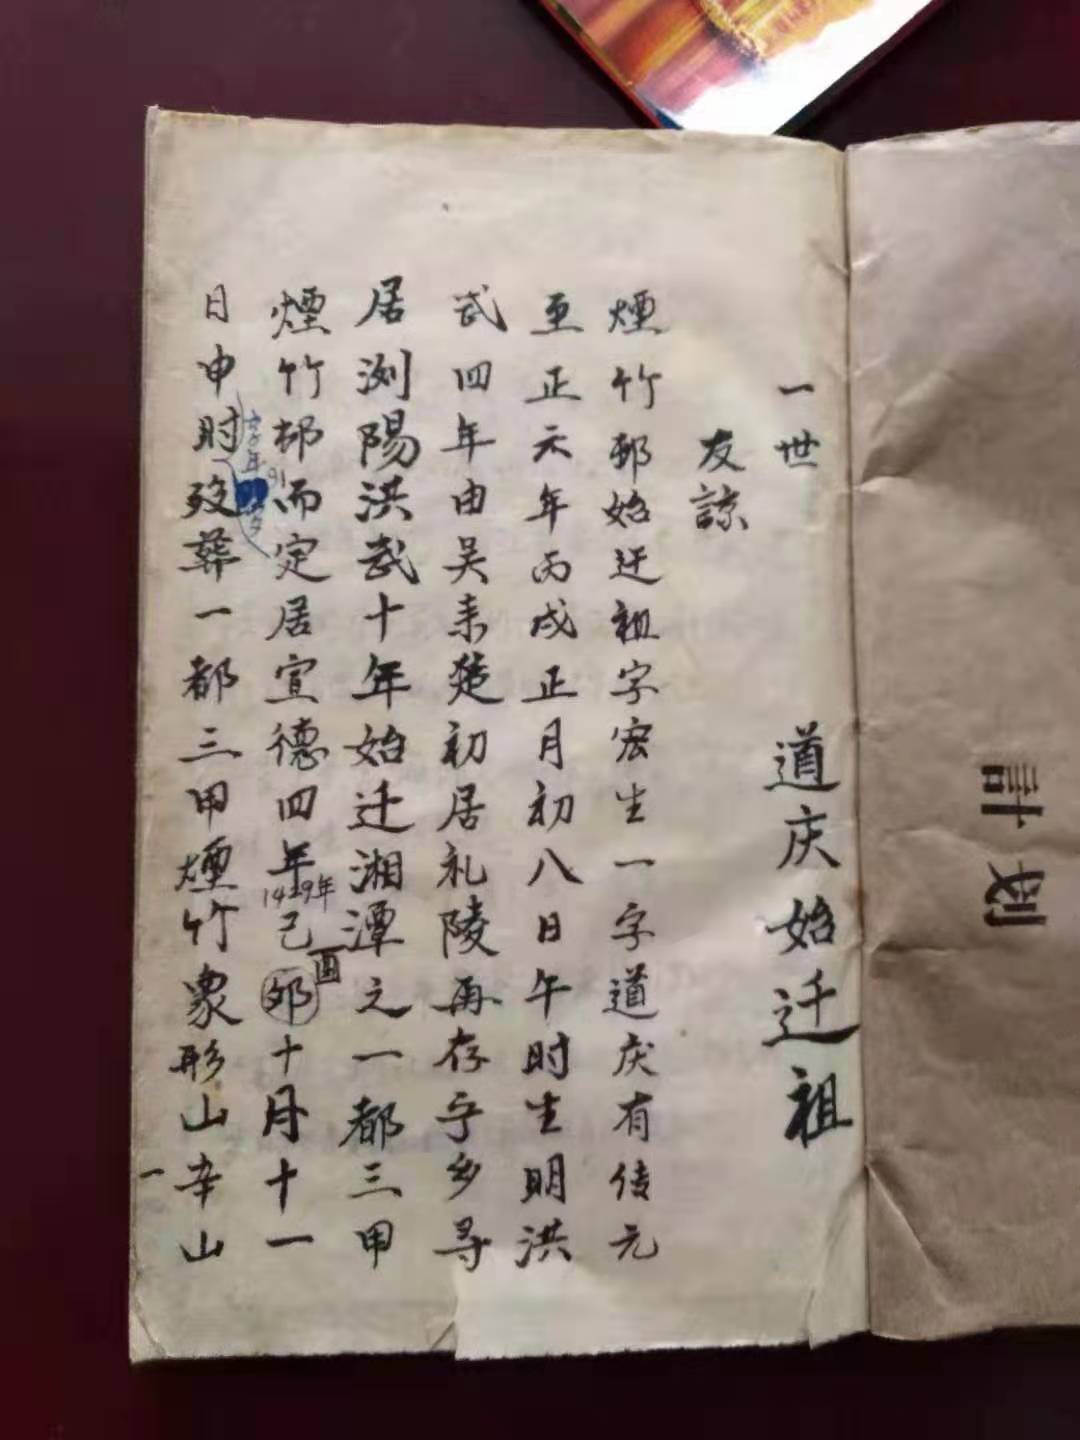 計划
一世 道庆始迁祖
友諒
煙竹邨始迁祖字宏生一字道庆有传元
至正六年丙戌正月初八日午时生明洪
武四年由吴来楚初居礼陵再存乎乡寻
居浏陽洪武十年始迁湘潭之一都三甲
煙竹邨而定居宣德四年己邜十月十一
1429年
酉
日申时歿葬一都三甲煙竹象形山辛山
一